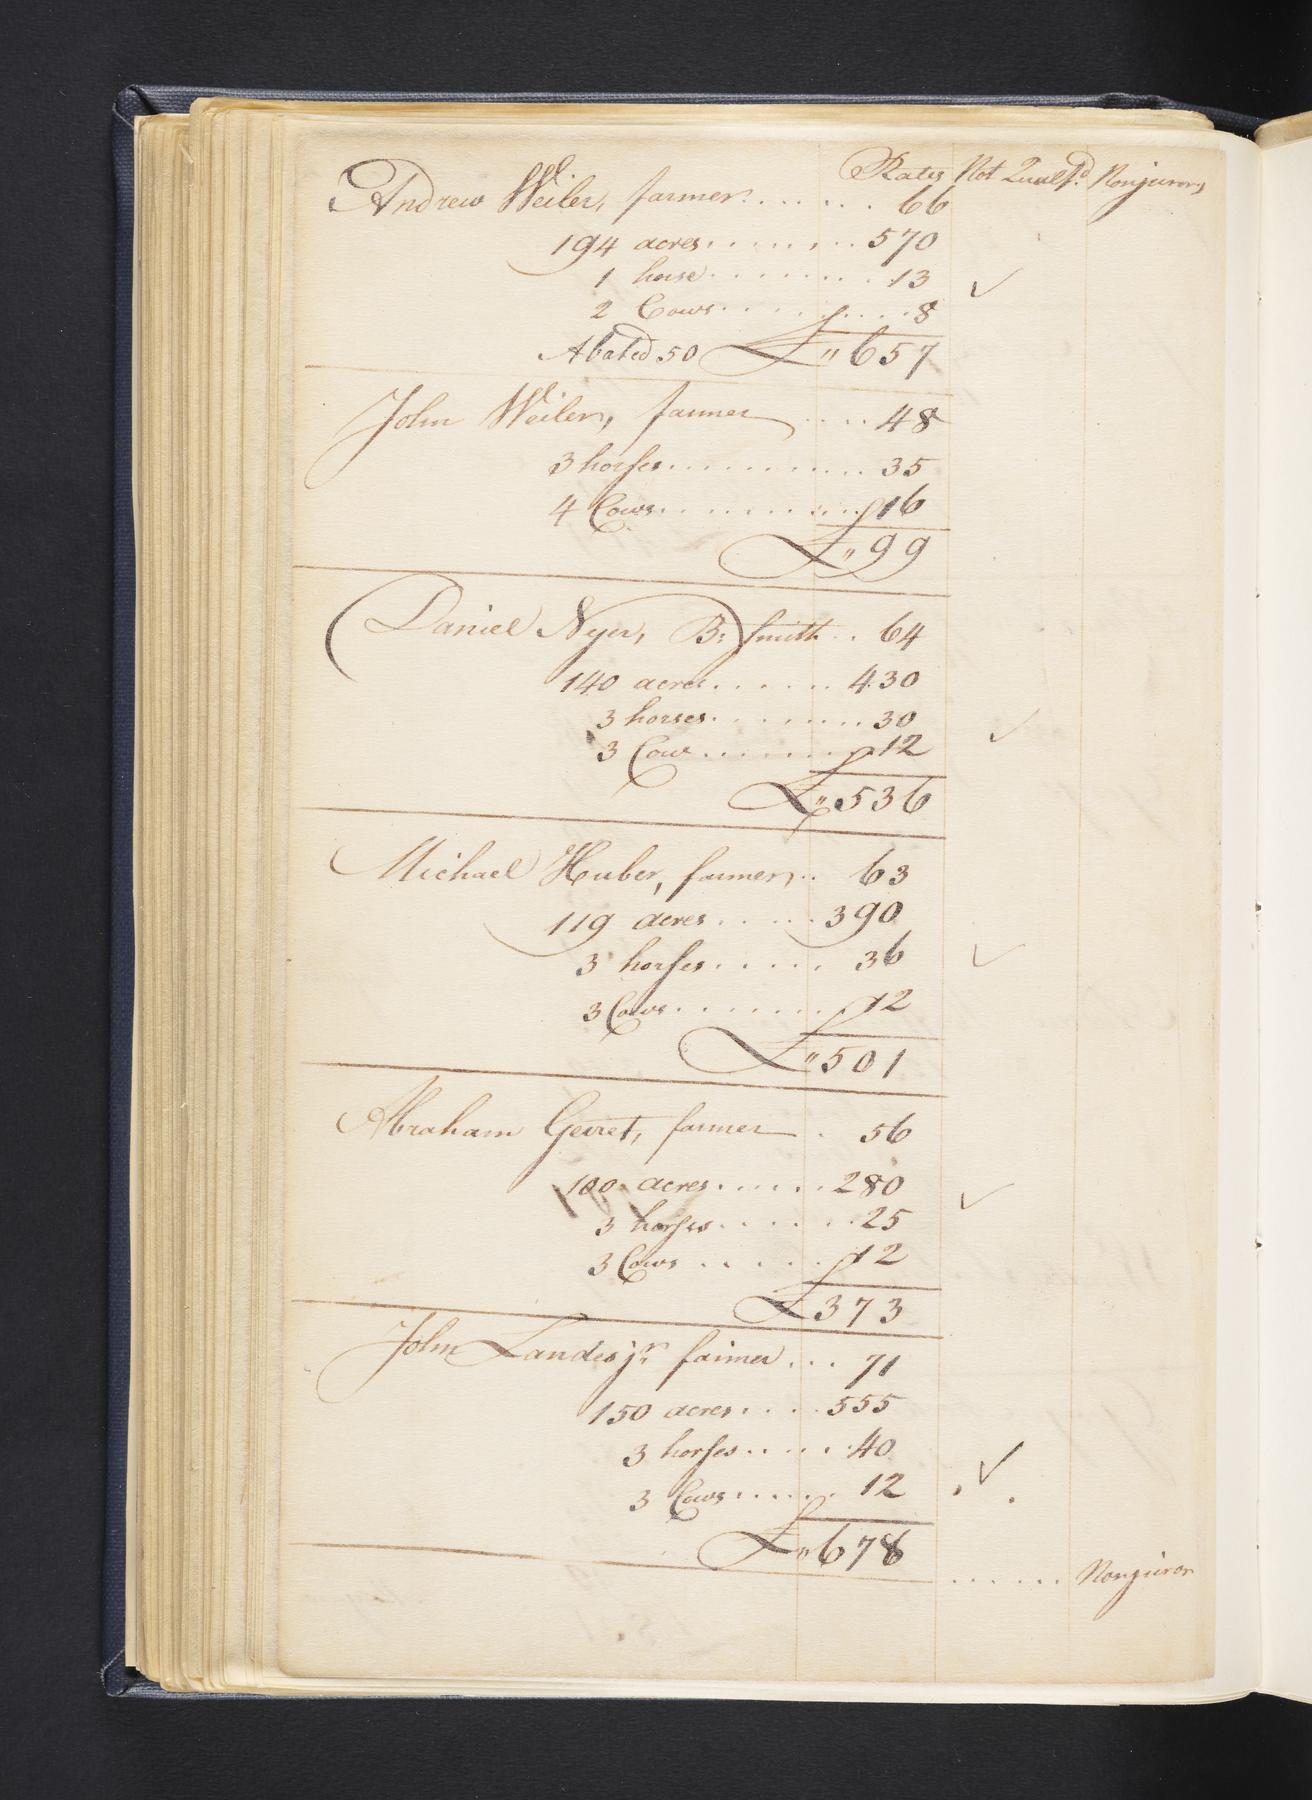 Rates Not Qualfd. Nonjurors
Andrew Weiler, farmer....... 66
194 acres......... 570
1 horse......... 13 ✓
2 Cows......... 8
Abated 50 £ " 657
John Weiler, farmer .... 48
3 horses........... 35
4 Cows.......... 16
£ " 99
Daniel Nyer, B: Smith .. 64
140 acres...... 430
3 horses......... 30 ✓
3 Cow........ 12
£ " 536
Michael Huber, farmer .. 63
119 acres..... 390
3 horses...... 36 ✓
3 Cows........ 12
£ " 501
Abraham Geiret, farmer . 56
100 acres...... 280 ✓
3 horses...... 25
3 Cows ..... 12
£ 373
John Landes jr. farmer ... 71
150 acres.... 555
3 horses..... 40 ✓
3 Cows..... 12
£ " 678
...... Nonjuror